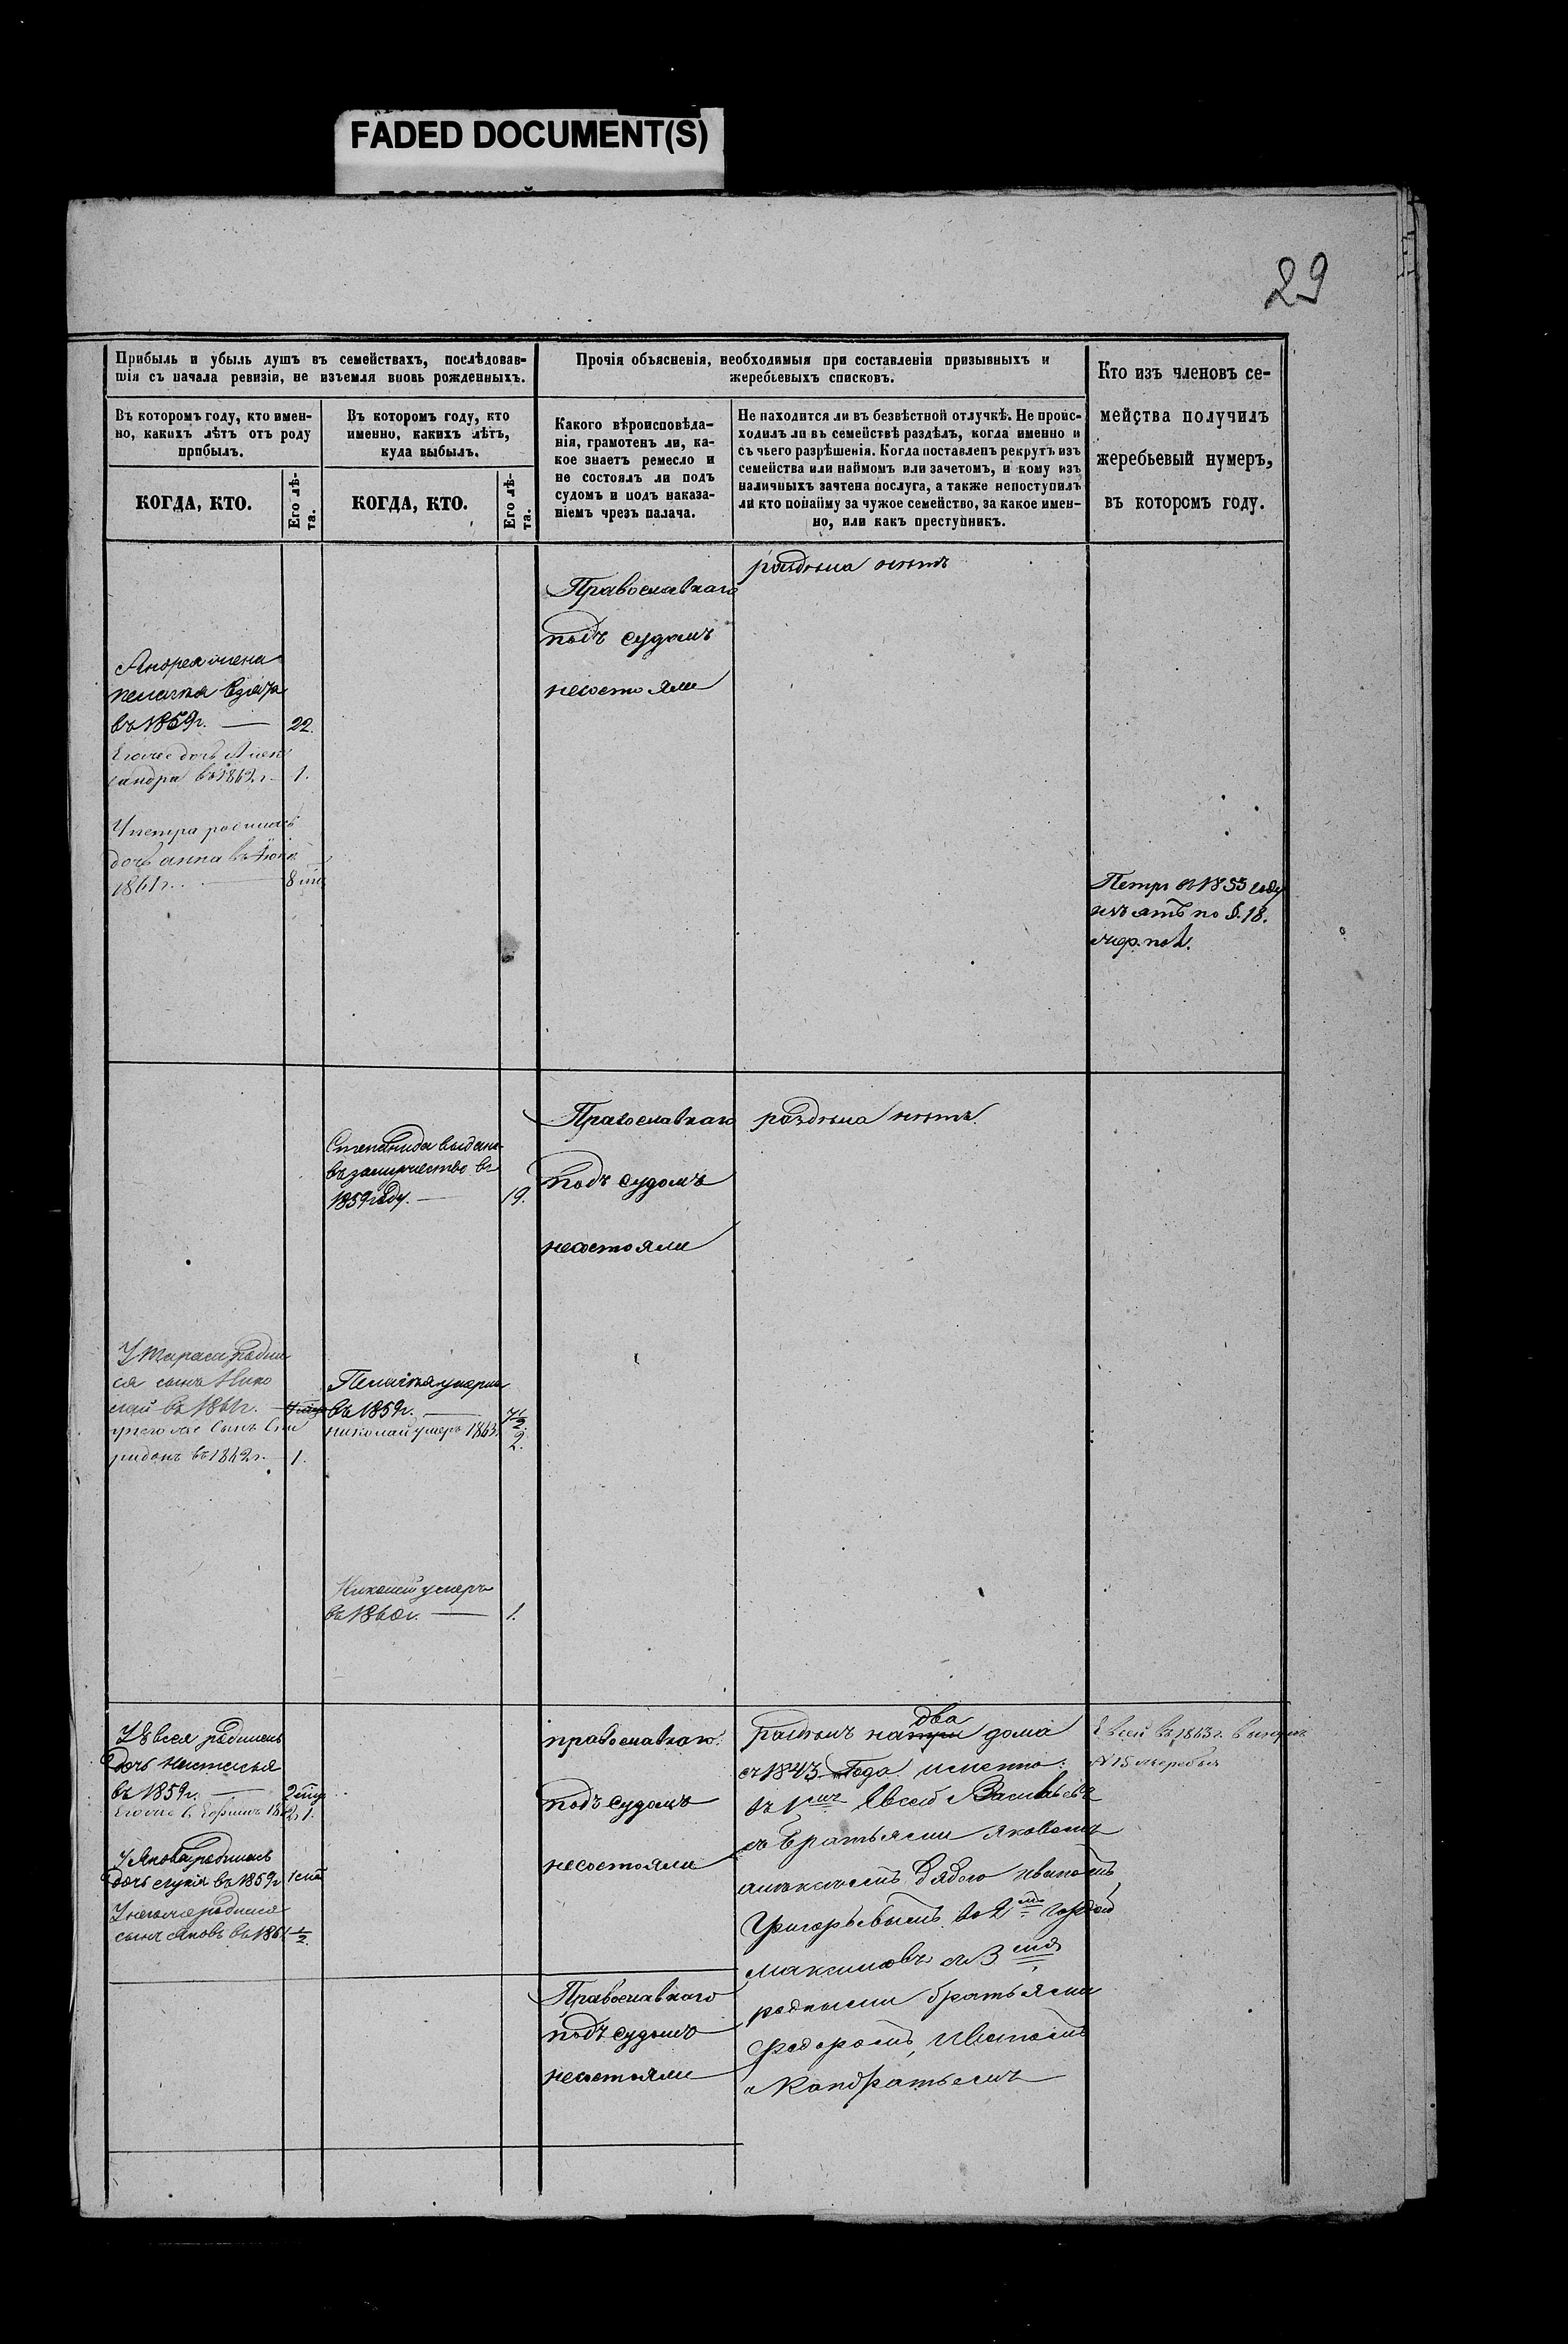 FADED DOCUMENT(S)
29
Прибыль и убыль душъ въ семействахъ, послѣдовав-
шія съ начала ревизіи, не изъемля вновь рожденныхъ.
Прочія объясненія, необходимыя при составленіи призывныхъ и
жеребьевыхъ списковъ.
Кто изъ членовъ се-
мейства получилъ
жеребьевый нумеръ,
въ которомъ году.
Въ которомъ году, кто имен-
но, какихъ лѣтъ отъ роду
прибылъ.
Въ которомъ году, кто
именно, какихъ лѣтъ,
куда выбылъ.
Какого вѣроисповѣда-
нія, грамотенъ ли, ка-
кое знаетъ ремесло и
не состоялъ ли подъ
судомъ и подъ наказа-
ніемъ чрезъ палача.
Не находится ли въ безвѣстной отлучкѣ. Не проис-
ходилъ ли въ семействѣ раздѣлъ, когда именно и
съ чьего разрѣшенія. Когда поставленъ рекрутъ изъ
семейства или наймомъ или зачетомъ, и кому изъ
наличныхъ зачтена послуга, а также непоступилъ
ли кто понайму за чужое семейство, за какое имен-
но, или какъ преступникъ.
КОГДА, КТО.
Его лѣ-
та.
КОГДА, КТО.
Его лѣ-
та.
раздѣла нѣтъ
Православнаго
подъ судомъ
несостояли
Андрея жена
пелагея взята
въ 1859г. — 22.
Егоже дочь Алек
сандра въ 1862г. 1.
У петра родилась
дочь анна въ
1861г. — 8
Петръ въ 1855 году
изъятъ по §. 18.
жер. пол.
Православнаго
раздѣла нѣтъ.
подъ судомъ
несостояли
Степанида выдана
въ замужество въ
1859 году. — 19.
У Тараса родил
ся сынъ Нико
лай въ 1861г.
унегоже сынъ Спи
ридонъ въ 1862г. 1.
Пелагея умерла
въ 1859г. — 7 1/2
николай умеръ 1863. 2.
Николай умеръ
въ 1860г. — 1.
У Евсея родилась
дочь настасья
въ 1859г. — 2
Егоже с. Ефимъ 1862 1.
У Якова родилась
дочь в 1859г 1
Унегоже родился
сынъ яковъ въ 1861 1/2
православнаго.
подъ судомъ
несостояли
Православнаго
подъ судомъ
несостояли
два
раздѣлъ на три дома
съ 1843 года именно:
въ 1мъ Евсей Васильевъ
съ братьями яковомъ
дядею иваномъ
Григорьевымъ во 2мъ
максимовъ съ 3мя
родными братьями
федоромъ, иваномъ
и Кондратьемъ
Евсей въ 1863г. вынулъ
№ 15 жеребья